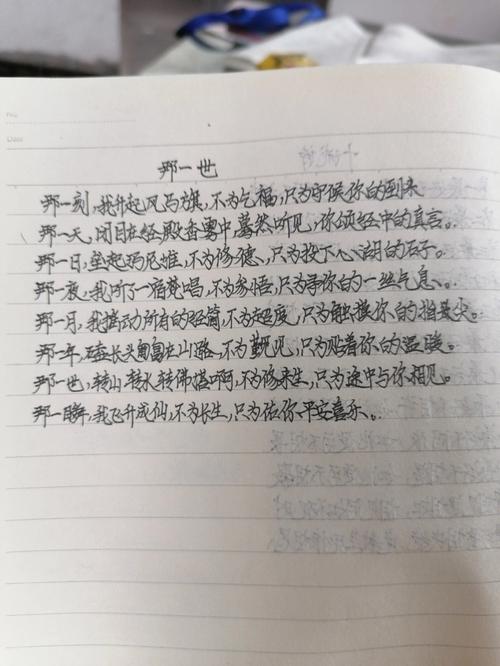 No.
Date
那一世
那一刻,我升起风马旗,不为乞福,只为守候你的到来
那一天,闭目在经殿香雾中,蓦然听见,你颂经中的真言。
那一日,垒起玛尼堆,不为修德,只为投下心湖的石子。
那一夜,我听了一宿梵唱,不为参悟,只为寻你的一丝气息。
那一月,我摇动所有的经筒,不为超度,只为触摸你的指尖。
那一年,磕长头匍匐在山路,不为觐见,只为贴着你的温暖。
那一世,转山转水转佛塔啊,不为修来生,只为途中与你相见。
那一瞬,我飞升成仙,不为长生,只为佑你平安喜乐。